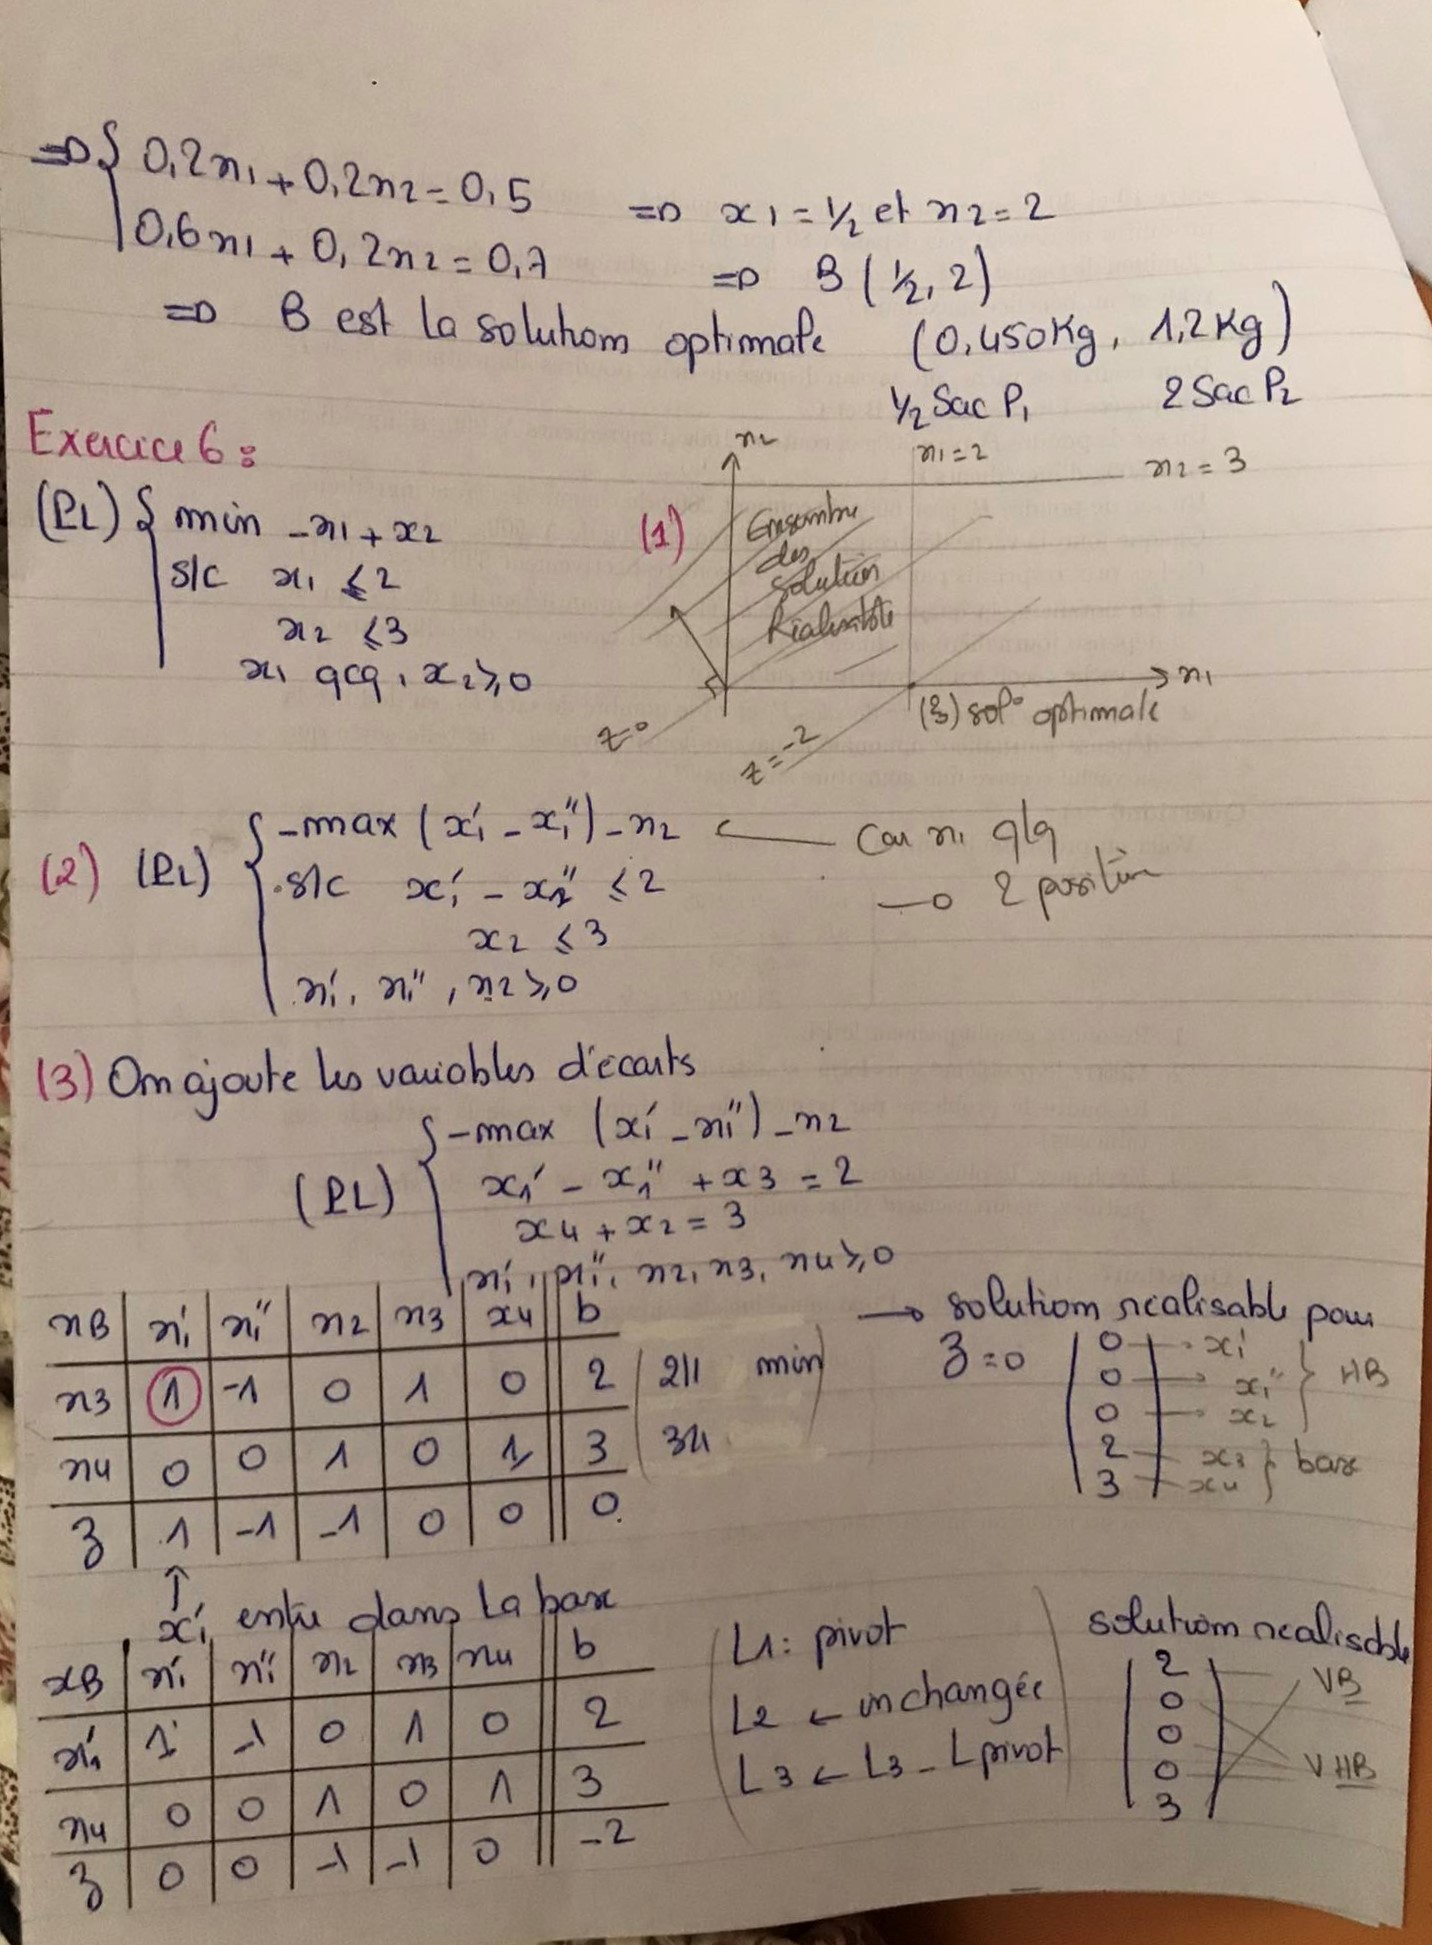 ⇒ { 0,2x1 + 0,2x2 = 0,5
0,6x1 + 0,2x2 = 0,7
⇒ x1 = 1/2 et x2 = 2
⇒ B (1/2, 2)
⇒ B est la solution optimale (0,450Kg, 1,2Kg)
1/2 Sac P1 2 Sac P2
Exercice 6 :
(PL) { min -x1 + x2
s/c x1 ≤ 2
x2 ≤ 3
x1 qcq, x2 ≥ 0
(1)
x2
x1 = 2
x2 = 3
Ensembre
des
solution
Réalisable
x1
z=0
z=-2
(3) sol° optimale
(2) (PL) { -max (x1' - x1'') - x2 ← Car x1 qlq
s/c x1' - x1'' ≤ 2 → 2 positive
x2 ≤ 3
x1', x1'', x2 ≥ 0
(3) On ajoute les variables d'écarts
(PL) { -max (x1' - x1'') - x2
x1' - x1'' + x3 = 2
x4 + x2 = 3
x1', x1'', x2, x3, x4 ≥ 0
xB x1' x1'' x2 x3 x4 b
x3 1 -1 0 1 0 2 2/1 min
x4 0 0 1 0 1 3
z 1 -1 -1 0 0 0
→ solution réalisable pour
z = 0
0 → x1'
0 → x1''
0 → x2
HB
2 → x3
3 → x4
base
↑
x1' entre dans la base
xB x1' x1'' x2 x3 x4 b
x1' 1 -1 0 1 0 2
x4 0 0 1 0 1 3
z 0 0 -1 -1 0 -2
L1 : pivot
L2 ← inchangée
L3 ← L3 - Lpivot
solution réalisable
2
0
0
0
3
VB
VHB